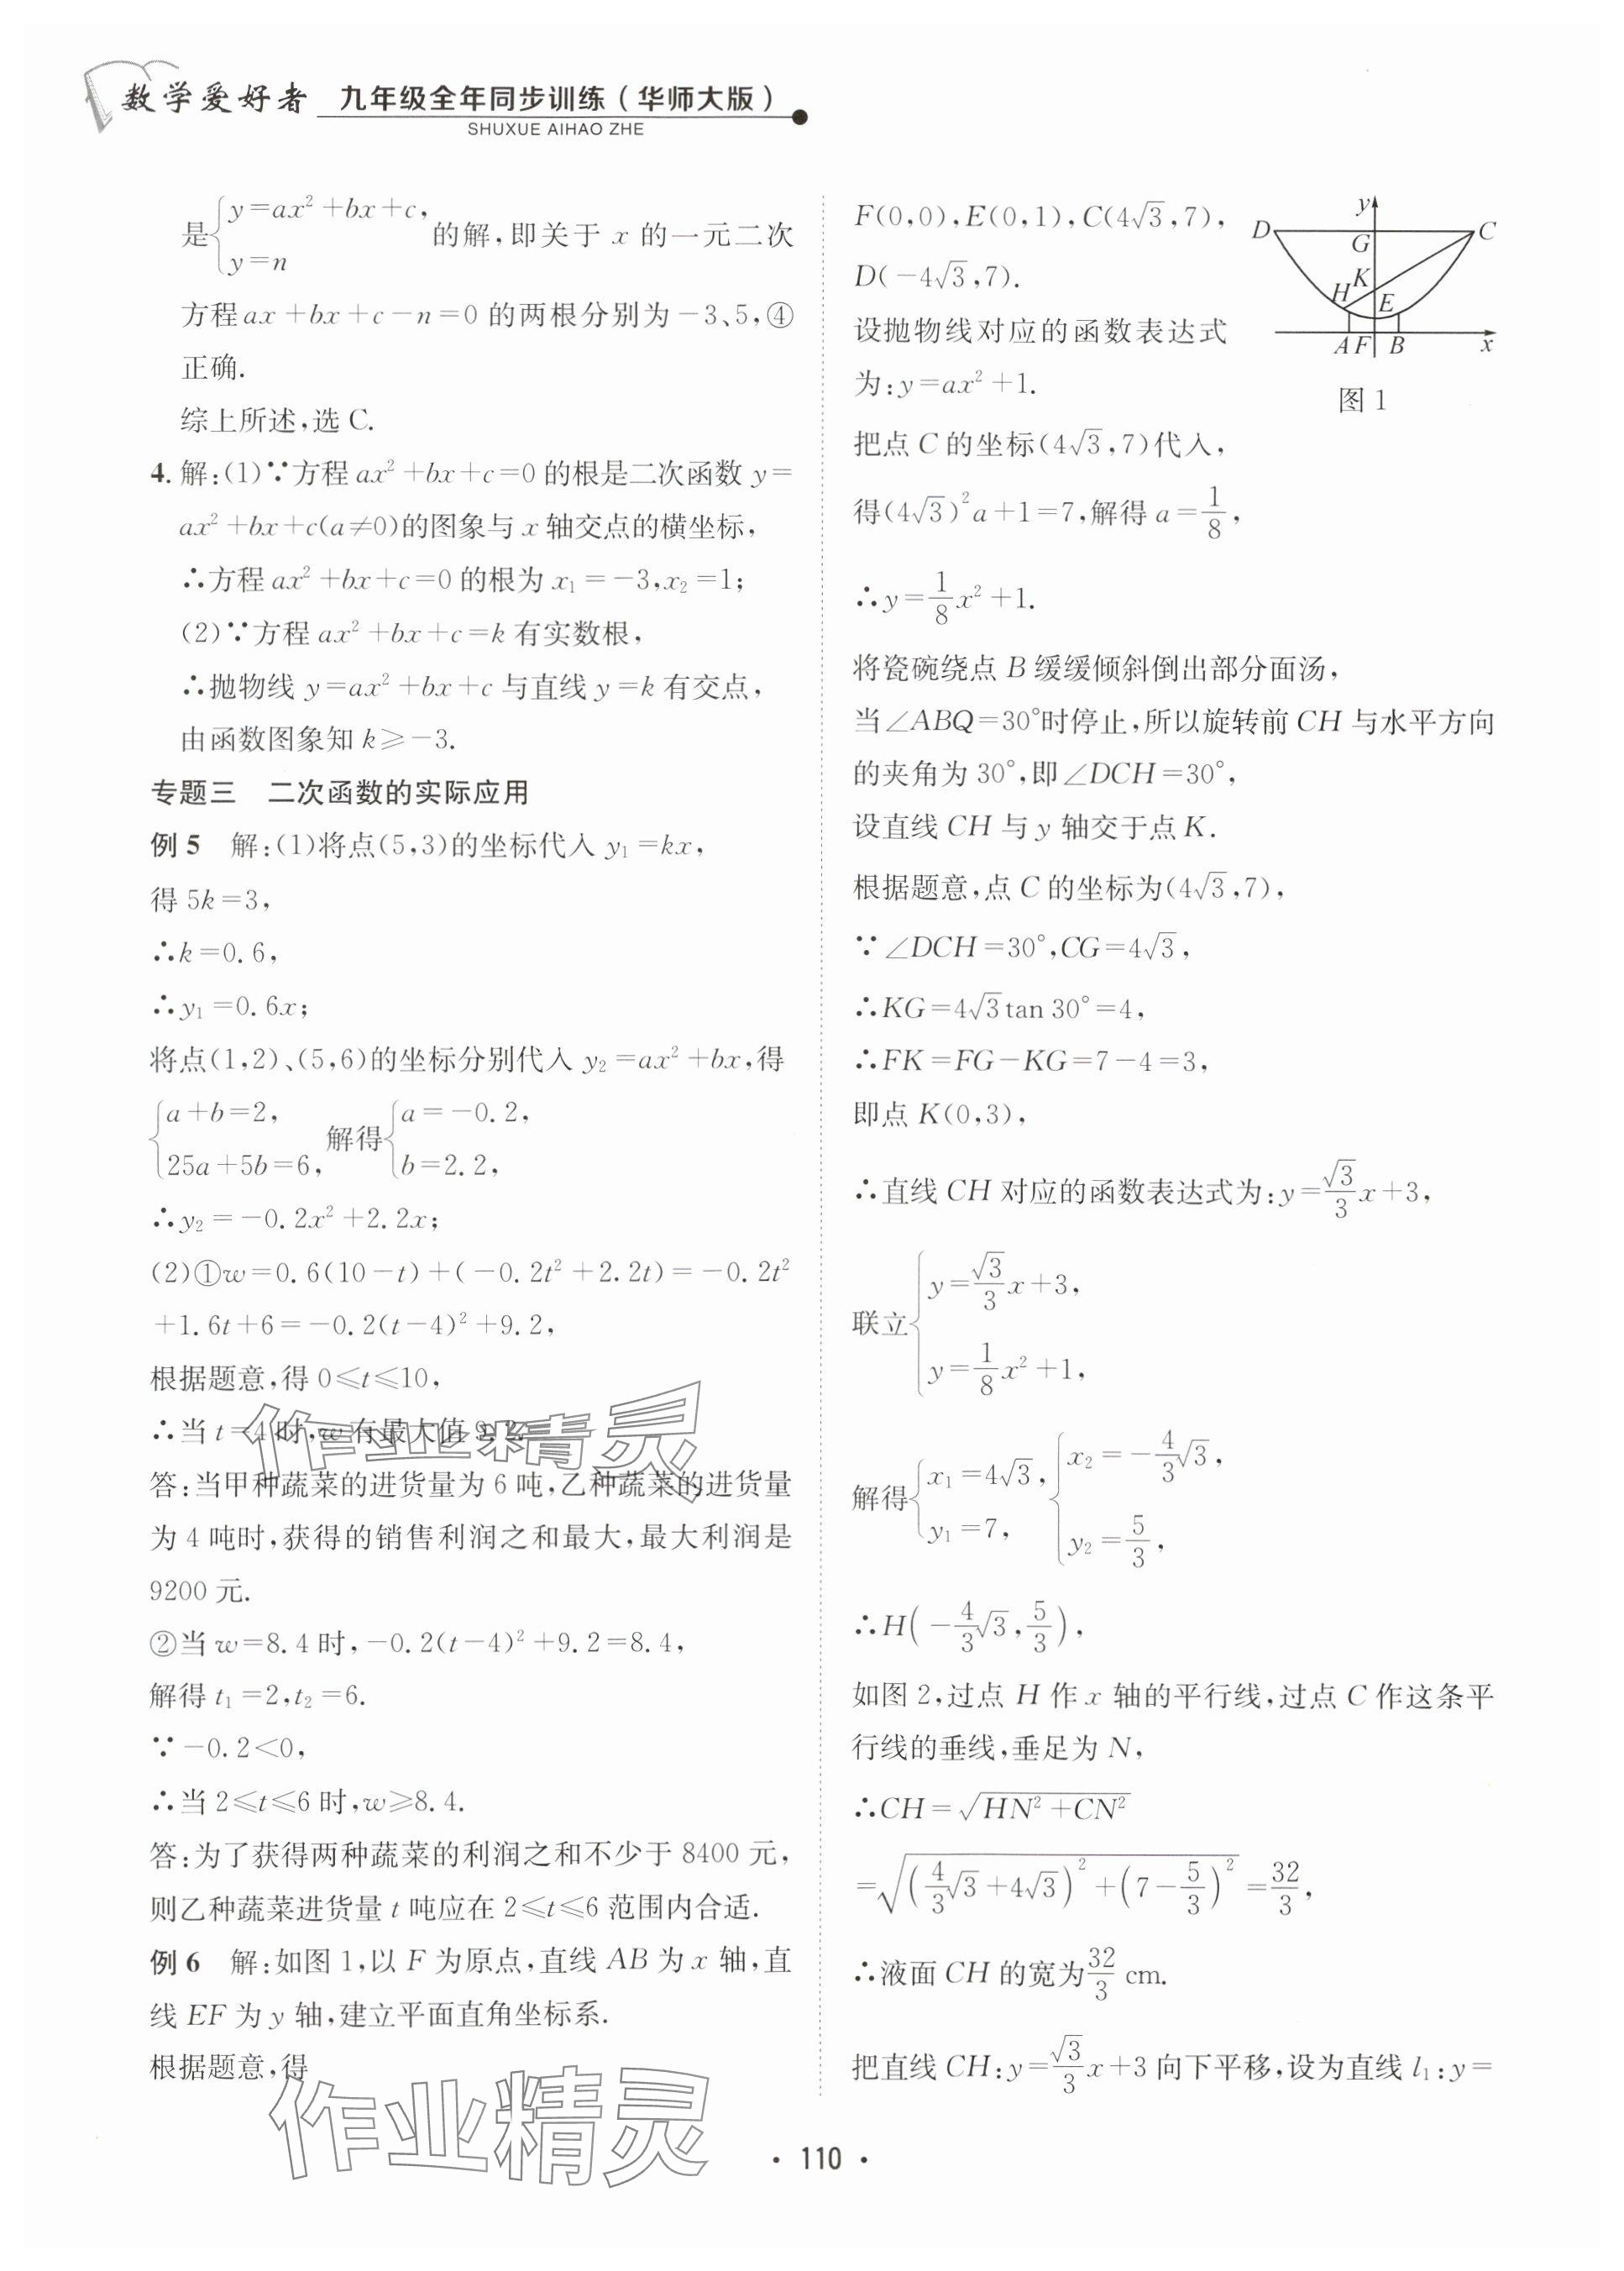 数学爱好者 九年级全年同步训练(华师大版)
SHUXUE AIHAO ZHE
是{y=ax²+bx+c, y=n 的解,即关于 x 的一元二次
方程ax+bx+c-n=0 的两根分别为-3、5,④
正确.
综上所述,选 C.
4. 解:(1)∵方程 ax²+bx+c=0 的根是二次函数 y=
ax²+bx+c(a≠0)的图象与 x 轴交点的横坐标,
∴方程 ax²+bx+c=0 的根为 x₁=-3,x₂=1;
(2)∵方程 ax²+bx+c=k 有实数根,
∴抛物线 y=ax²+bx+c 与直线 y=k 有交点,
由函数图象知 k≥-3.
专题三 二次函数的实际应用
例 5 解:(1)将点(5,3)的坐标代入 y₁=kx,
得 5k=3,
∴k=0.6,
∴y₁=0.6x;
将点(1,2)、(5,6)的坐标分别代入 y₂=ax²+bx,得
{a+b=2, 25a+5b=6, 解得{a=-0.2, b=2.2,
∴y₂=-0.2x²+2.2x;
(2)①w=0.6(10-t)+(-0.2t²+2.2t)=-0.2t²
+1.6t+6=-0.2(t-4)²+9.2,
根据题意,得 0≤t≤10,
∴当 t=4 时,w 有最大值 9.2.
答:当甲种蔬菜的进货量为 6 吨,乙种蔬菜的进货量
为 4 吨时,获得的销售利润之和最大,最大利润是
9200 元.
②当 w=8.4 时,-0.2(t-4)²+9.2=8.4,
解得 t₁=2,t₂=6.
∵-0.2<0,
∴当 2≤t≤6 时,w≥8.4.
答:为了获得两种蔬菜的利润之和不少于 8400 元,
则乙种蔬菜进货量 t 吨应在 2≤t≤6 范围内合适.
例 6 解:如图 1,以 F 为原点,直线 AB 为 x 轴,直
线 EF 为 y 轴,建立平面直角坐标系.
根据题意,得
F(0,0),E(0,1),C(4√3,7),
D(-4√3,7).
设抛物线对应的函数表达式
为:y=ax²+1.
y
D
G
C
K
H
E
A F B x
图 1
把点 C 的坐标(4√3,7)代入,
得(4√3)²a+1=7,解得 a=1/8,
∴y=1/8x²+1.
将瓷碗绕点 B 缓缓倾斜倒出部分面汤,
当∠ABQ=30°时停止,所以旋转前 CH 与水平方向
的夹角为 30°,即∠DCH=30°,
设直线 CH 与 y 轴交于点 K.
根据题意,点 C 的坐标为(4√3,7),
∵∠DCH=30°,CG=4√3,
∴KG=4√3tan 30°=4,
∴FK=FG-KG=7-4=3,
即点 K(0,3),
∴直线 CH 对应的函数表达式为:y=√3/3x+3,
联立{y=√3/3x+3, y=1/8x²+1,
解得{x₁=4√3, y₁=7, {x₂=-4/3√3, y₂=5/3,
∴H(-4/3√3,5/3),
如图 2,过点 H 作 x 轴的平行线,过点 C 作这条平
行线的垂线,垂足为 N,
∴CH=√(HN²+CN²)
=√((4/3√3+4√3)²+(7-5/3)²)=32/3,
∴液面 CH 的宽为32/3 cm.
把直线 CH:y=√3/3x+3 向下平移,设为直线 l₁:y=
作业精灵
作业精灵
• 110 •